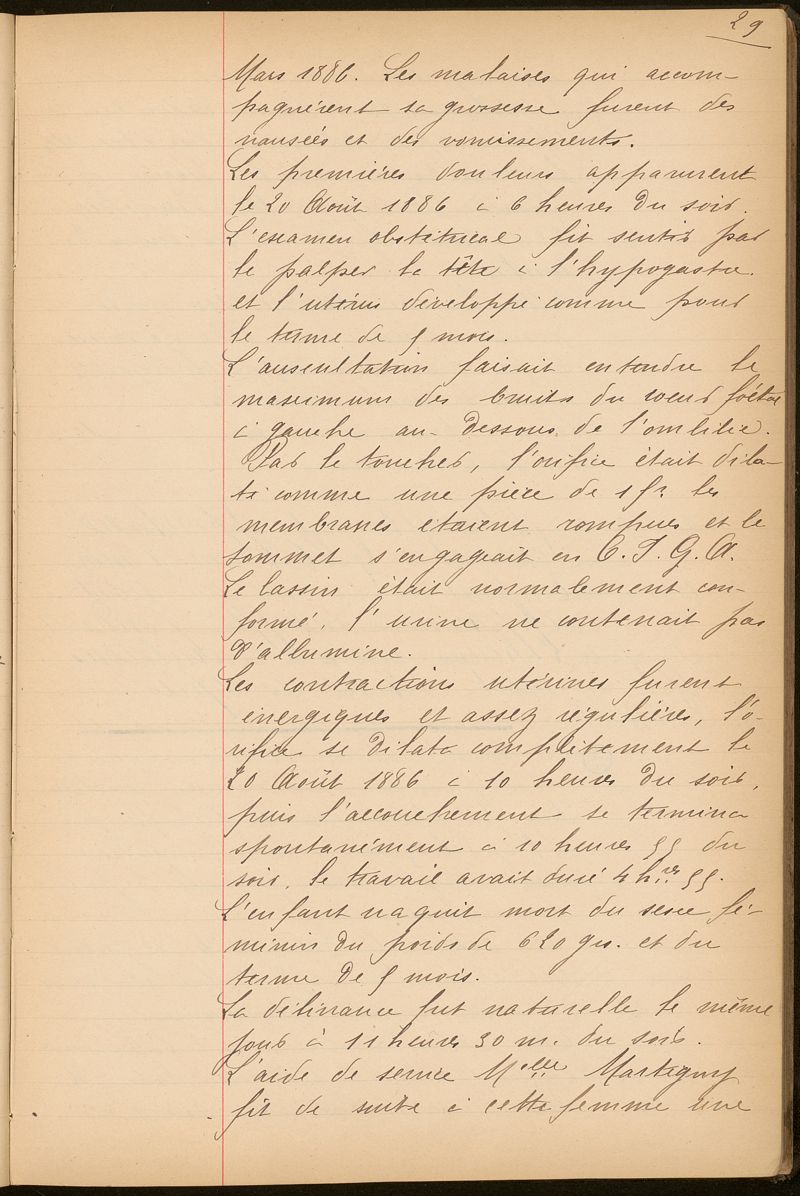 29
Mars 1886. Les malaises qui accom-
pagnèrent sa grossesse furent des
nausées et des vomissements.
Les premières douleurs apparurent
le 20 Août 1886 à 6 heures du soir.
L'examen obstétrical fit sentir par
le palper la tête à l'hypogastre.
et l'utérus développé comme pour
le terme de 5 mois.
L'auscultation faisait entendre le
maximum des bruits du coeur foetal
à gauche au-dessous de l'ombilic.
Par le toucher, l'orifice était dila-
té comme une pièce de 1 fr. les
membranes étaient rompues et le
sommet s'engageait en O.I.G.A.
Le bassin était normalement con-
formé, l'urine ne contenait pas
d'albumine.
Les contractions utérines furent
énergiques et assez régulières, l'o-
rifice se dilata complètement le
20 Août 1886 à 10 heures du soir,
puis l'accouchement se termina
spontanément à 10 heures 55 du
soir, le travail avait duré 4 h.res 55.
L'enfant naquit mort du sexe fé-
minin du poids de 620 grs. et du
terme de 5 mois.
La délivrance fut naturelle le même
jour à 11 heures 30 m. du soir.
L'aide de service Melle Martigny
fit de suite à cette femme une